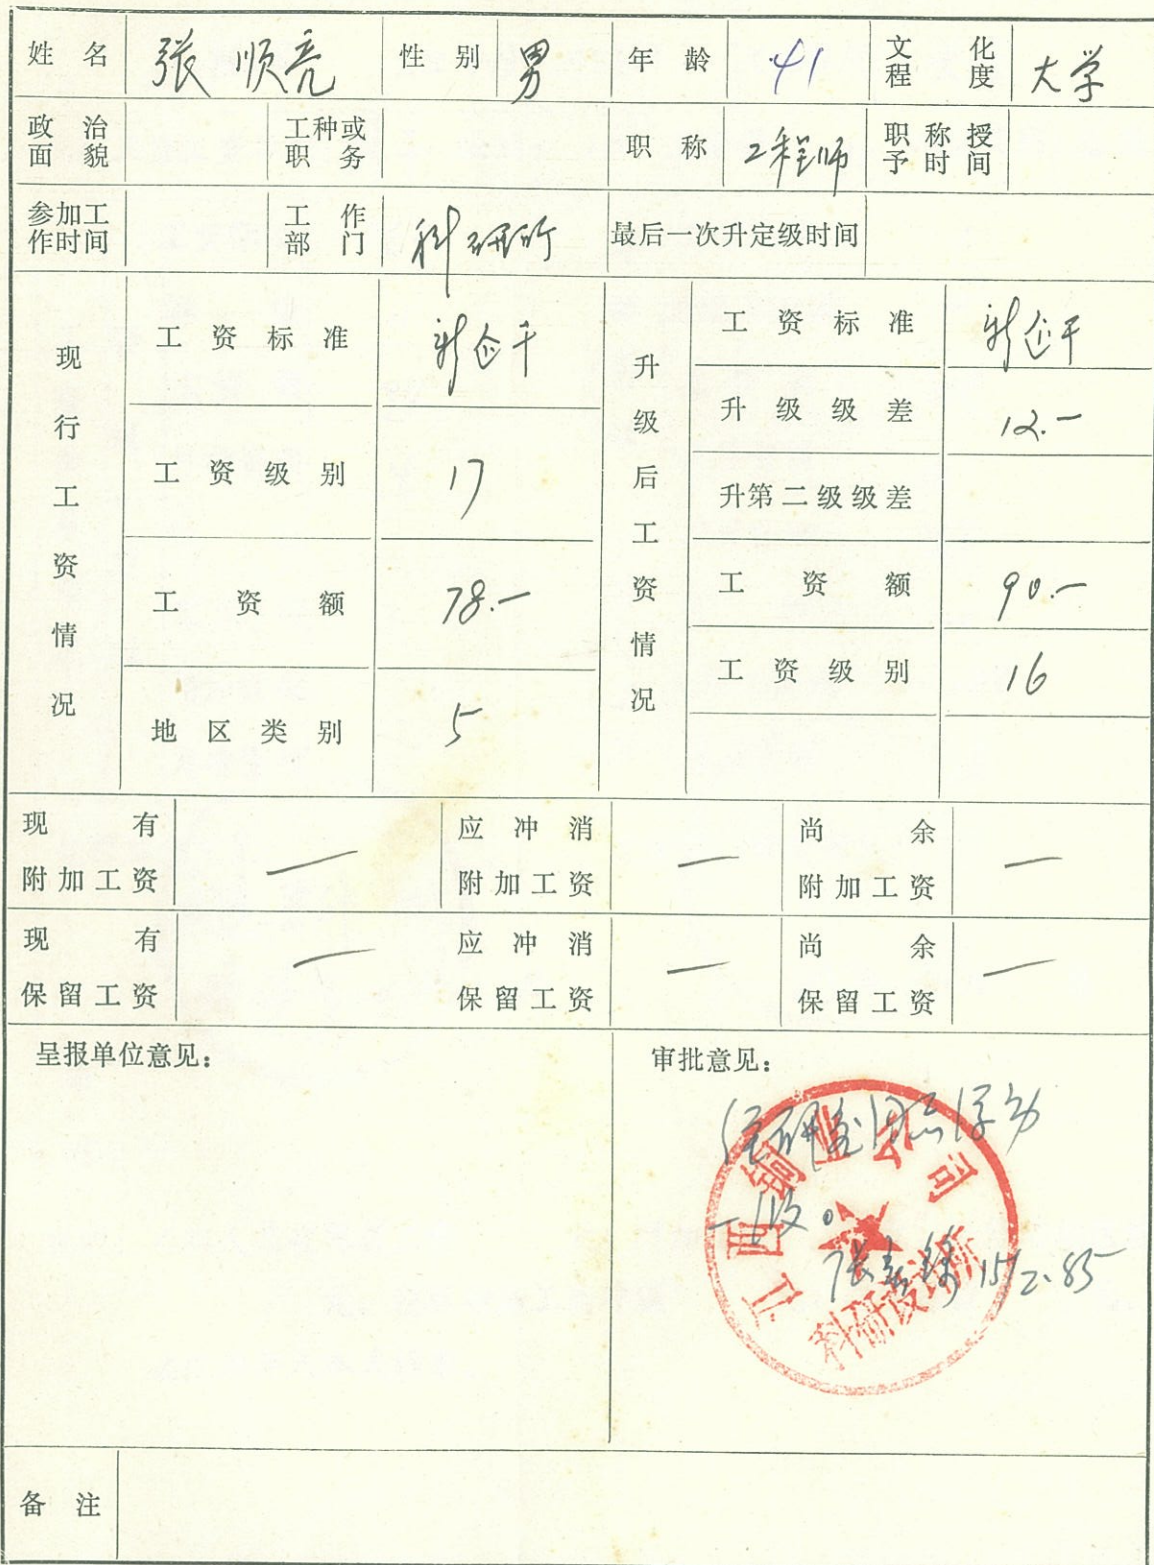 姓名 张顺亮 性别 男 年龄 41 文化程度 大学
政治面貌 工种或职务 职称 工程师 职称授予时间
参加工作时间 工作部门 科研所 最后一次升定级时间
现行工资情况
工资标准 新企干
工资级别 17
工资额 78.一
地区类别 5
升级后工资情况
工资标准 新企干
升级级差 12.一
升第二级级差
工资额 90.一
工资级别 16
现有附加工资 一 应冲消附加工资 一 尚余附加工资 一
现有保留工资 一 应冲消保留工资 一 尚余保留工资 一
呈报单位意见:
审批意见:
一级。
15/2.85
江西铜业公司
科研设计所
备注